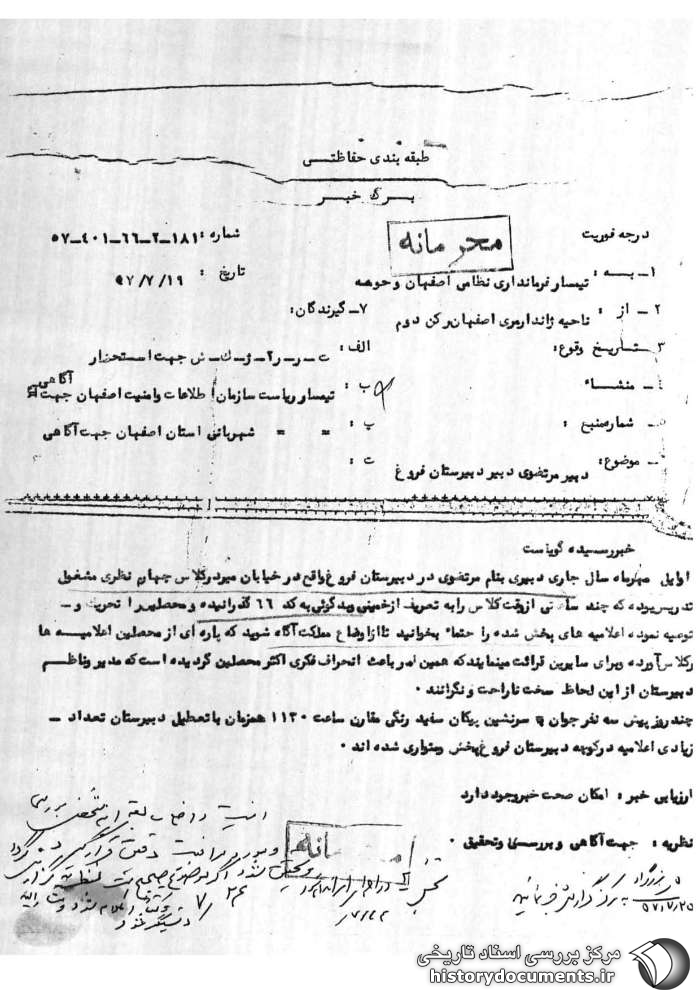 طبقه بندی حفاظتی
برگ خبر
درجه فوریت
محرمانه
شماره : ۱۸۱-۲-۶۶-۴۰۱-۵۷
تاریخ : ۵۷/۷/۱۹
۱- به : تیمسار فرمانداری نظامی اصفهان و حومه
۲- از : ناحیه ژاندارمری اصفهان رکن دوم
۳- تاریخ وقوع:
۴- منشاء
۵- شمار منبع :
موضوع: دبیر مرتضوی دبیر دبیرستان فروغ
۷- گیرندگان:
الف : ت-ر-ر۲-ژ-ك-ش جهت استحضار
ب : تیمسار ریاست سازمان اطلاعات و امنیت اصفهان جهت آگاهی
پ : = = شهربانی استان اصفهان جهت آگاهی
ت :
خبر رسیده گویاست
اوایل مهرماه سال جاری دبیری بنام مرتضوی در دبیرستان فروغ واقع در خیابان میر در کلاس چهارم نظری مشغول
تدریس بوده که چند ساعتی از وقت کلاس را به تعریف از خمینی و بد گوئی به کد ۶۶ گذرانیده و محصلین را تحریک و -
توصیه نموده اعلامیه های پخش شده را حتما" بخوانید تا از اوضاع مملکت آگاه شوید که پاره ای از محصلین اعلامیه ها
رکلاس آورده و برای سایرین قرائت مینمایند که همین امر باعث انحراف فکری اکثر محصلین گردیده است که مدیر و ناظم
دبیرستان از این لحاظ سخت ناراحت و نگرانند .
چند روز پیش سه نفر جوان سرنشین پیکان سفید رنگی مقارن ساعت ۱۱۳۰ همزمان با تعطیل دبیرستان تعداد -
زیادی اعلامیه در کوچه دبیرستان فروغ پخش و متواری شده اند .
ارزیابی خبر : امکان صحت خبر وجود دارد
نظریه : جهت آگاهی و بررسی و تحقیق .
۵۷/۷/۲۵
۷/۲۴
مرکز بررسی اسناد تاریخی
historydocuments.ir